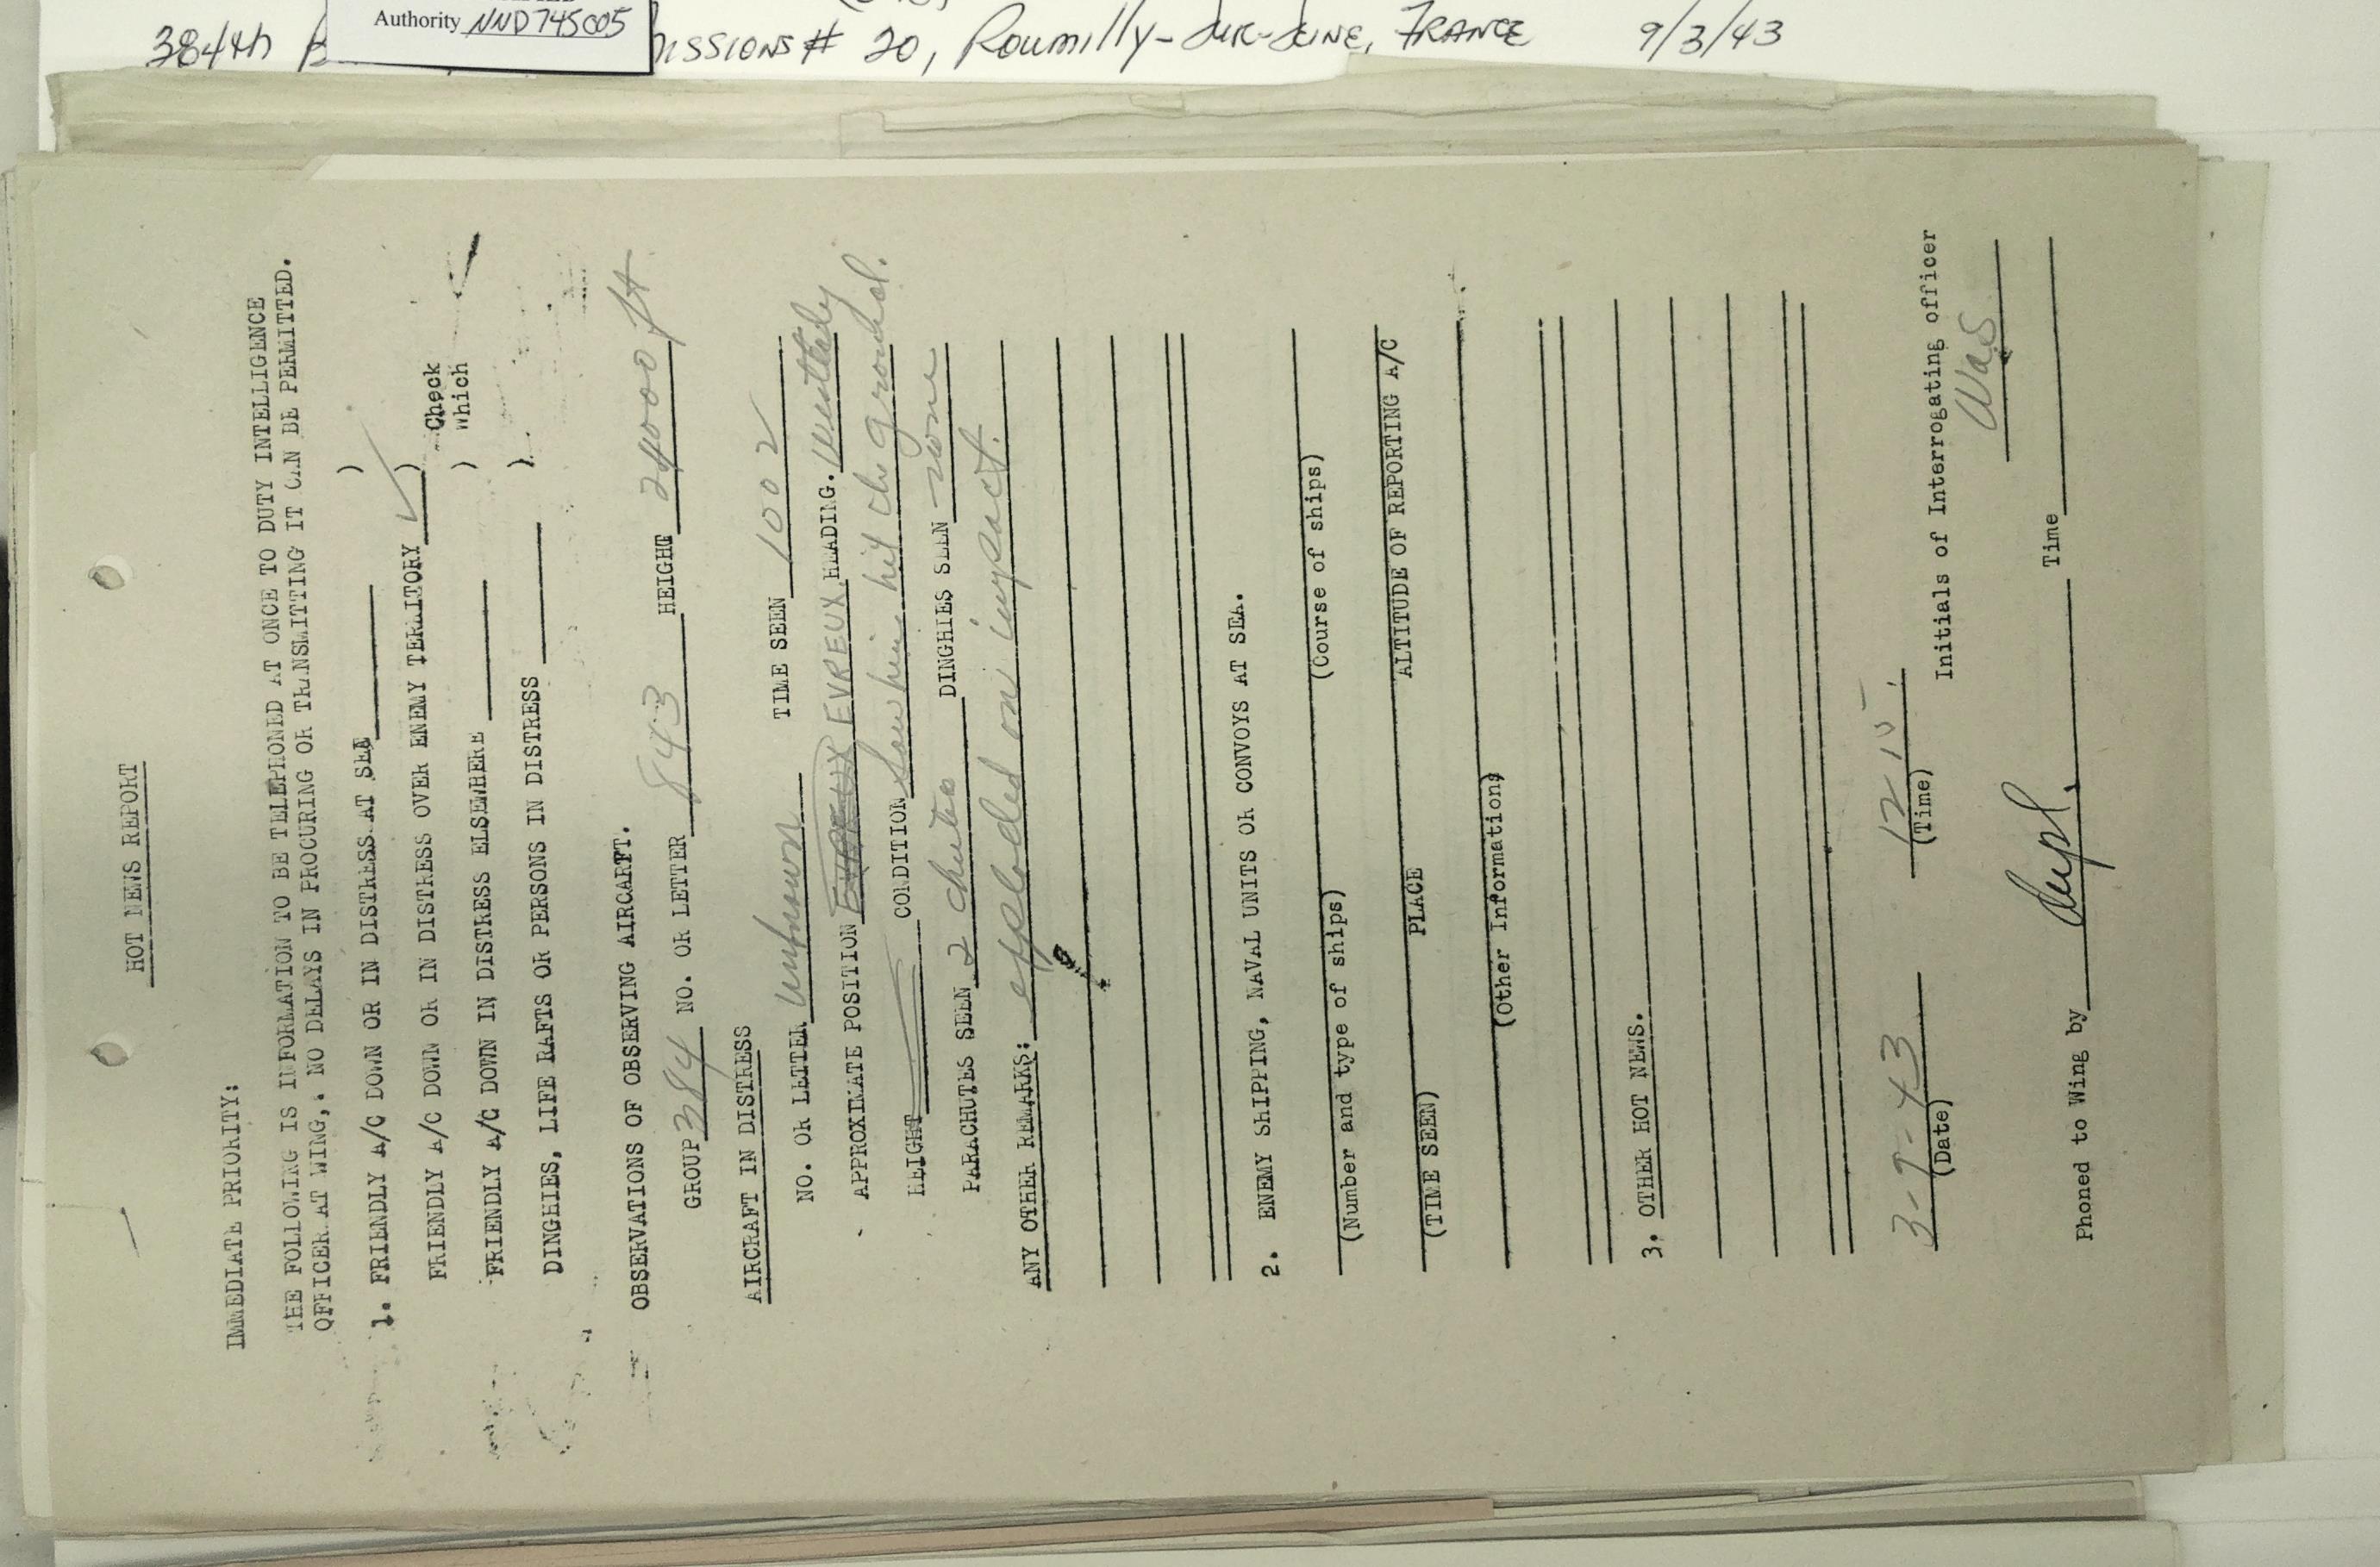 Authority NND745005
384th B
ISSIONS # 20, Roumilly-Sur-Seine, FRANCE 9/3/43
HOT NEWS REPORT
IMMEDIATE PRIORITY:
THE FOLLOWING IS INFORMATION TO BE TELEPHONED AT ONCE TO DUTY INTELLIGENCE
OFFICER AT WING,. NO DELAYS IN PROCURING OR TRANSMITTING IT CAN BE PERMITTED.
1. FRIENDLY A/C DOWN OR IN DISTRESS AT SEA )
FRIENDLY A/C DOWN OR IN DISTRESS OVER ENEMY TERRITORY ✓ ) Check
FRIENDLY A/C DOWN IN DISTRESS ELSEWHERE ) which
DINGHIES, LIFE RAFTS OR PERSONS IN DISTRESS )
OBSERVATIONS OF OBSERVING AIRCARFT.
GROUP 384 NO. OR LETTER 843 HEIGHT 24000 ft
AIRCRAFT IN DISTRESS
NO. OR LETTER unknown TIME SEEN 1002
APPROXIMATE POSITION EVREUX HEADING. Westerly
HEIGHT CONDITION Saw him hit the ground.
PARACHUTES SEEN 2 chutes DINGHIES SEEN none
ANY OTHER REMARKS: exploded on impact.
2. ENEMY SHIPPING, NAVAL UNITS OR CONVOYS AT SEA.
(Number and type of ships) (Course of ships)
(TIME SEEN) PLACE ALTITUDE OF REPORTING A/C
(Other Information)
3. OTHER HOT NEWS.
3-9-43 1215
(Date) (Time) Initials of Interrogating officer
WaS
Phoned to Wing by Time